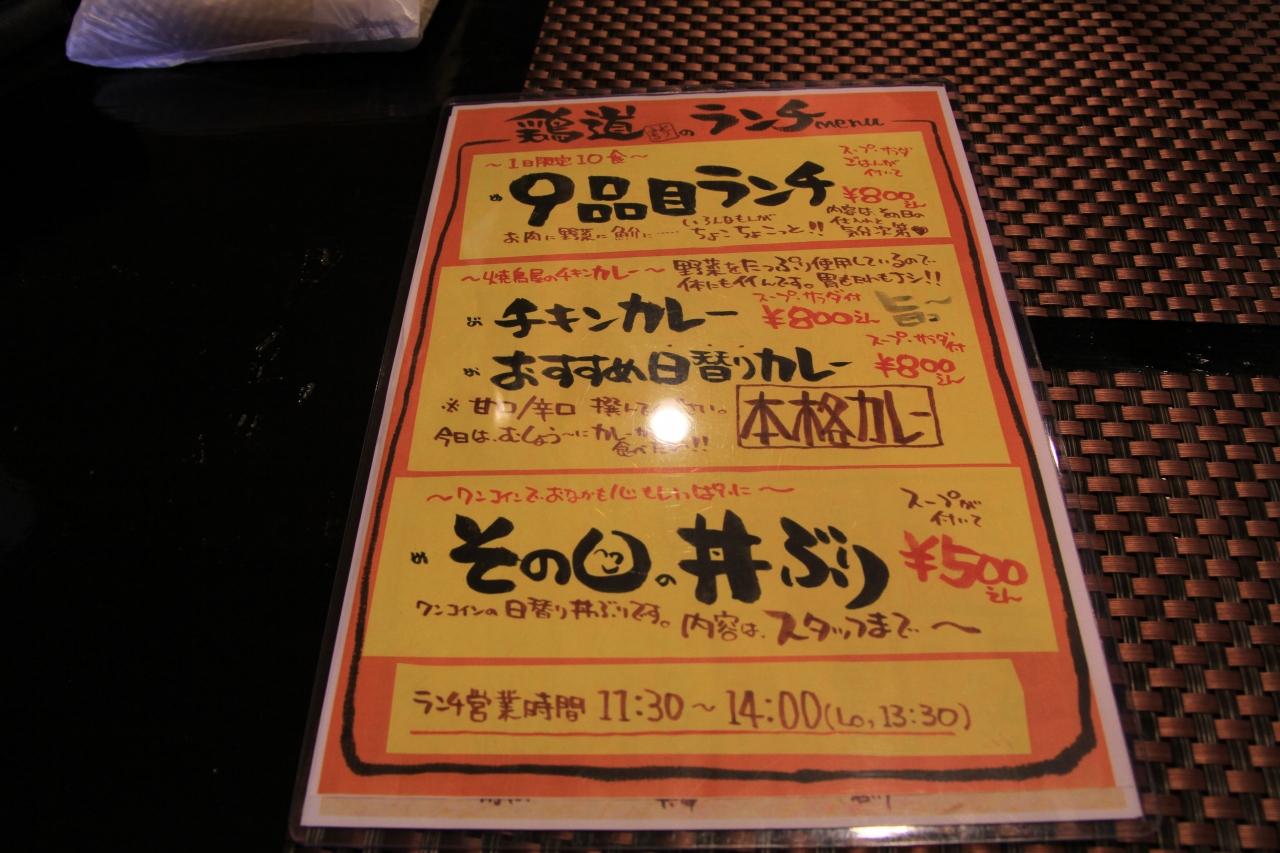 鶏道のランチmenu
～1日限定10食～
スープ・サラダ
ごはんが
付いて
9品目ランチ
¥800えん
いろんなもんが
お肉に野菜に……ちょこちょこっと!!
内容は、その日の
仕入れと
気分次第♥
～焼鳥屋のチキンカレー～
野菜をたっぷり使用しているので、
体にもイイんです。胃もたれもナシ!!
チキンカレー
スープ・サラダ付
¥800えん
旨っ～
おすすめ日替りカレー
スープ・サラダ付
¥800えん
※甘口/辛口 撰んで さい。
今日は、むしょう～にカレーが
食べた !!
本格カレー
～ワンコインでおなかも心もいっぱいに～
その日の丼ぶり
スープが
付いて
¥500えん
ワンコインの日替り丼ぶりです。内容は、スタッフまで～
ランチ営業時間 11:30～14:00(Lo, 13:30)